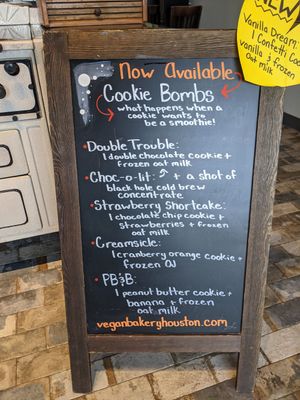 NEW!
Vanilla Dream
1 Confetti Coo
vanilla & frozen
oat milk
Now Available
Cookie Bombs
what happens when a
cookie wants to
be a smoothie!
Double Trouble:
1 double chocolate cookie +
frozen oat milk
Choc-o-lit: + a shot of
black hole cold brew
concentrate
Strawberry Shortcake:
1 chocolate chip cookie +
strawberries + frozen
oat milk
Creamsicle:
1 cranberry orange cookie +
frozen OJ
PB&B:
1 peanut butter cookie +
banana + frozen
oat milk
veganbakeryhouston.com